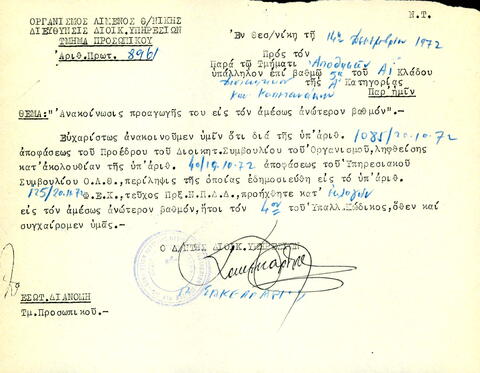 ΟΡΓΑΝΙΣΜΟΣ ΛΙΜΕΝΟΣ Θ/ΝΙΚΗΣ
ΔΙΕΥΘΥΝΣΙΣ ΔΙΟΙΚ.ΥΠΗΡΕΣΙΩΝ
ΤΜΗΜΑ ΠΡΟΣΩΠΙΚΟΥ
Ἀριθ.Πρωτ. 8961
Ν.Τ.
Ἐν Θεσ/νίκῃ τῇ 14ῃ 1972
Πρός τόν
Παρά τῷ Τμήματι Ἀποθηκῶν
ὑπάλληλον ἐπί βαθμῷ 5ῳ τοῦ Α1 Κλάδου
τῆς Α' Κατηγορίας
Παρ'ἡμῖν
ΘΕΜΑ: "Ἀνακοίνωσις προαγωγῆς του εἰς τόν ἀμέσως ἀνώτερον βαθμόν".
Εὐχαρίστως ἀνακοινοῦμεν ὑμῖν ὅτι διά τῆς ὑπ'ἀριθ. 1085/20.10.72
ἀποφάσεως τοῦ Προέδρου τοῦ Διοικητ.Συμβουλίου τοῦ Ὀργανισμοῦ,ληφθείσης
κατ'ἀκολουθίαν τῆς ὑπ'ἀριθ. 40/19.10.72 ἀποφάσεως τοῦ Ὑπηρεσιακοῦ
Συμβουλίου Ο.Λ.Θ., περίληψις τῆς ὁποίας ἐδημοσιεύθη εἰς τό ὑπ'ἀριθ.
125/20.11.72 Φ.Ε.Κ., τεῦχος Πρξ.Ν.Π.Δ.Δ., προήχθητε κατ' ἐκλογήν
εἰς τόν ἀμέσως ἀνώτερον βαθμόν, ἤτοι τόν 4ον τοῦ Ὑπαλλ.Κώδικος, ὅθεν καί
συγχαίρομεν ὑμᾶς.-
Ο Δ/ΝΤΗΣ ΔΙΟΙΚ.ΥΠΗΡΕΣΙΩΝ
ΕΣΩΤ.ΔΙΑΝΟΜΗ
Τμ.Προσωπικοῦ.-